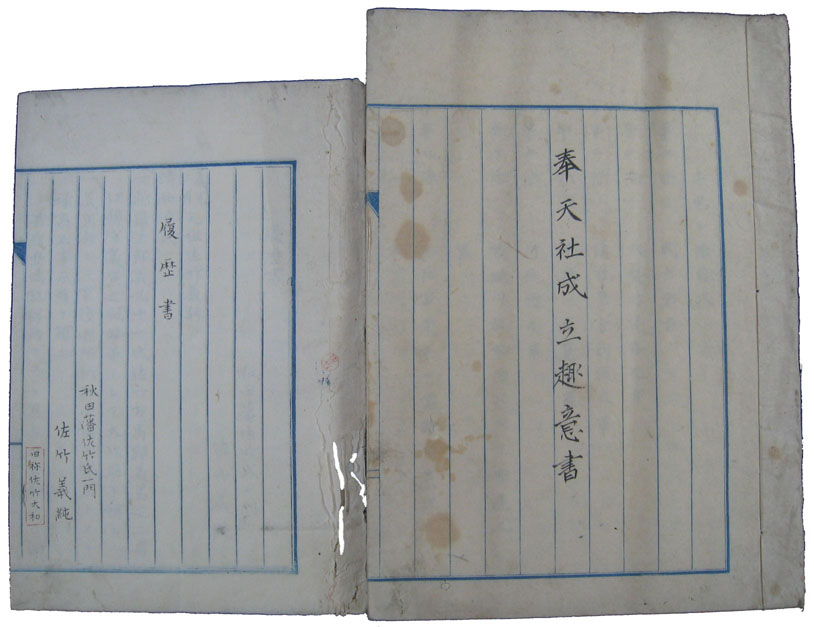 奉天社成立趣意書
履歴書
秋田藩佐竹氏一門
佐竹義純
旧称佐竹大和